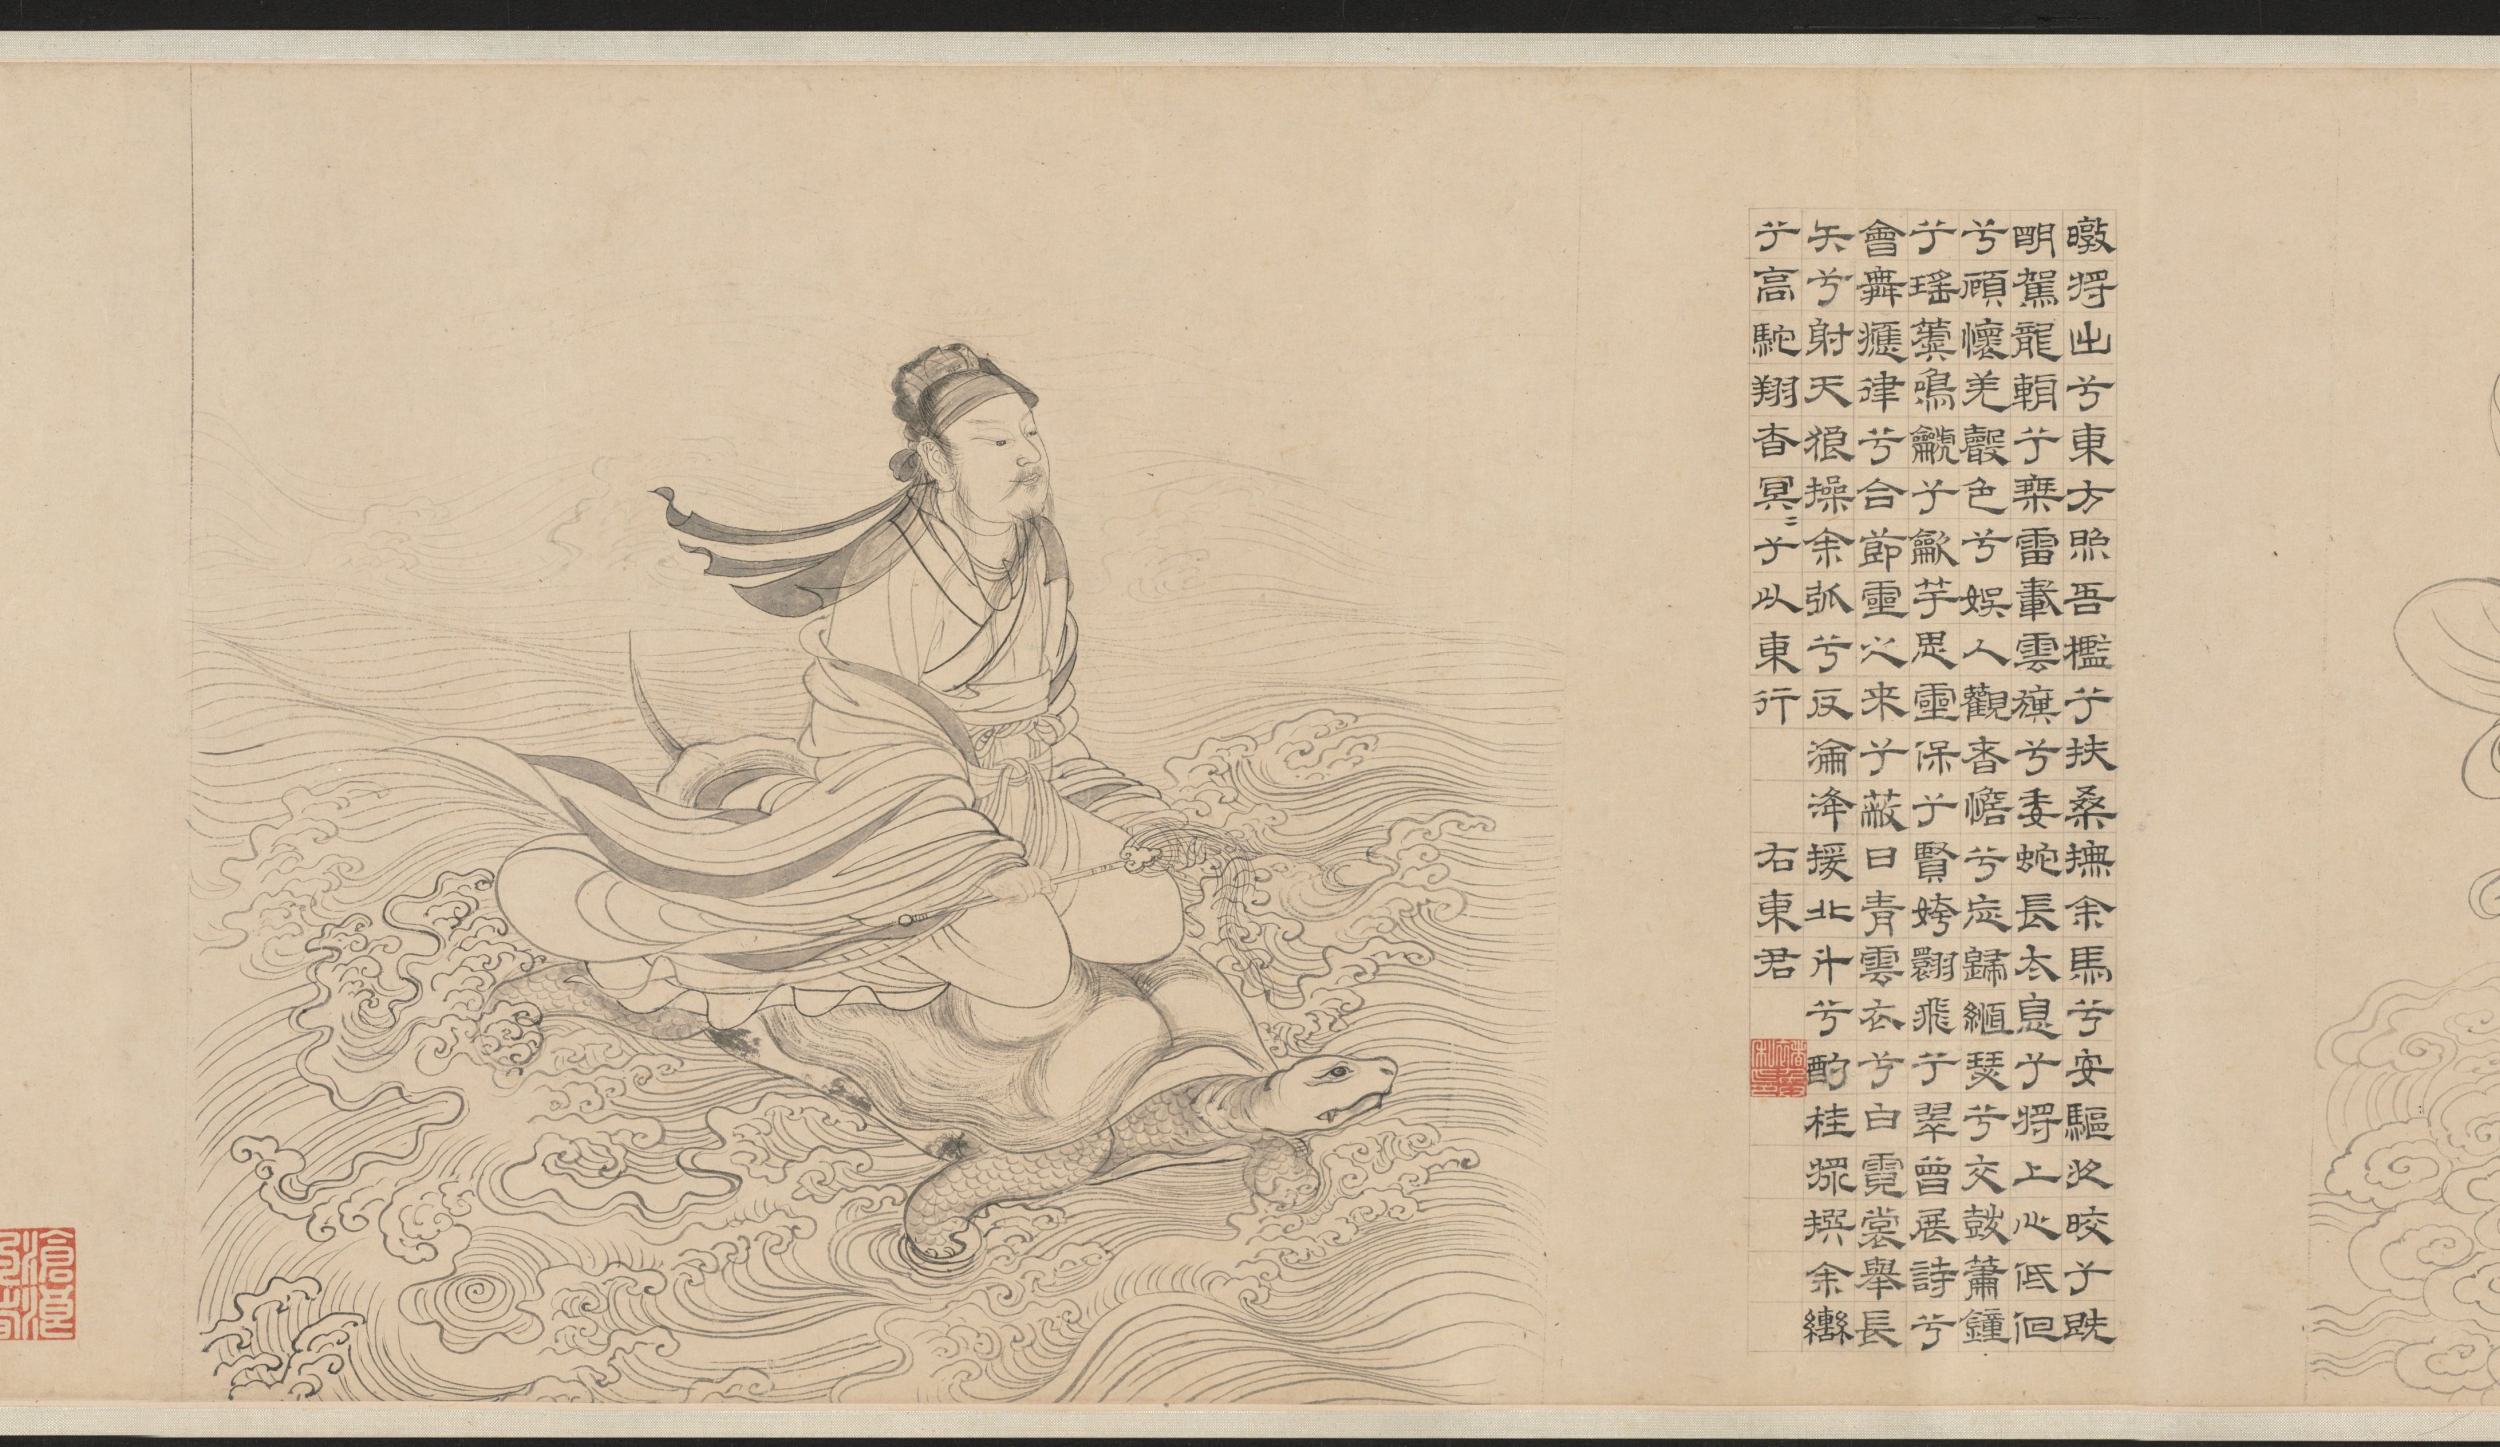 暾將出兮東方照吾檻兮扶桑撫余馬兮安驅夜晈兮既
明駕龍輈兮椉雷載雲旗兮委蛇長太息兮將上心低佪
兮顧懷羌聲色兮娛人觀者憺兮忘歸縆瑟兮交鼓簫鐘
兮瑤簴鳴䶵兮龡竽思靈保兮賢姱翾飛兮翠曾展詩兮
會舞應律兮合節靈之来兮蔽日青雲衣兮白霓裳舉長
矢兮射天狼操余弧兮反淪降援北斗兮酌桂漿撰余轡
兮高駝翔杳冥〻兮以東行 右東君